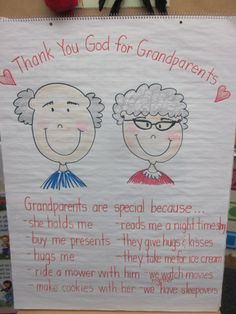 Thank You God for Grandparents
Grandparents are special because...
-she holds me
-reads me a night time story
-buy me presents
-they give hugs & kisses
-hugs me
-they take me for ice cream
-ride a mower with him
-we watch movies
-make cookies with her
-we have sleepovers